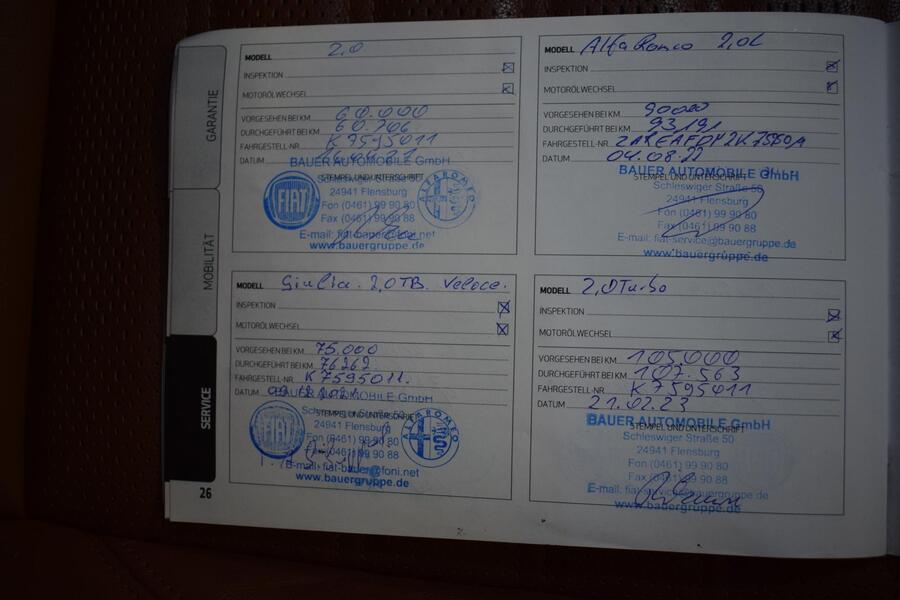 GARANTIE
MOBILITÄT
SERVICE
26
MODELL 2.0
INSPEKTION
MOTORÖLWECHSEL
VORGESEHEN BEI KM 60.000
DURCHGEFÜHRT BEI KM 60.706
FAHRGESTELL-NR. K7595011
DATUM
BAUER AUTOMOBILE GmbH
STEMPEL UND UNTERSCHRIFT
Schleswiger Straße 50
24941 Flensburg
FIAT
ALFA ROMEO
Fon (0461) 99 90 80
Fax (0461) 99 90 88
E-mail: fiat-bauer@foni.net
www.bauergruppe.de
MODELL Giulia 2,0TB. Veloce.
INSPEKTION
MOTORÖLWECHSEL
VORGESEHEN BEI KM 75.000
DURCHGEFÜHRT BEI KM 76262
FAHRGESTELL-NR. K7595011.
DATUM
BAUER AUTOMOBILE GmbH
STEMPEL UND UNTERSCHRIFT
Schleswiger Straße 50
24941 Flensburg
FIAT
ALFA ROMEO
Fon (0461) 99 90 80
Fax (0461) 99 90 88
E-mail: fiat-bauer@foni.net
www.bauergruppe.de
MODELL Alfa Romeo 2,0L
INSPEKTION
MOTORÖLWECHSEL
VORGESEHEN BEI KM 90000
DURCHGEFÜHRT BEI KM 93191
FAHRGESTELL-NR.
DATUM 04.08.22
BAUER AUTOMOBILE GmbH
STEMPEL UND UNTERSCHRIFT
Schleswiger Straße 50
24941 Flensburg
Fon (0461) 99 90 80
Fax (0461) 99 90 88
E-mail: fiat-service@bauergruppe.de
www.bauergruppe.de
MODELL 2,0Turbo
INSPEKTION
MOTORÖLWECHSEL
VORGESEHEN BEI KM 105.000
DURCHGEFÜHRT BEI KM 107.563
FAHRGESTELL-NR. K7595011
DATUM 21.02.23
BAUER AUTOMOBILE GmbH
STEMPEL UND UNTERSCHRIFT
Schleswiger Straße 50
24941 Flensburg
Fon (0461) 99 90 80
Fax (0461) 99 90 88
E-mail: fiat-service@bauergruppe.de
www.bauergruppe.de